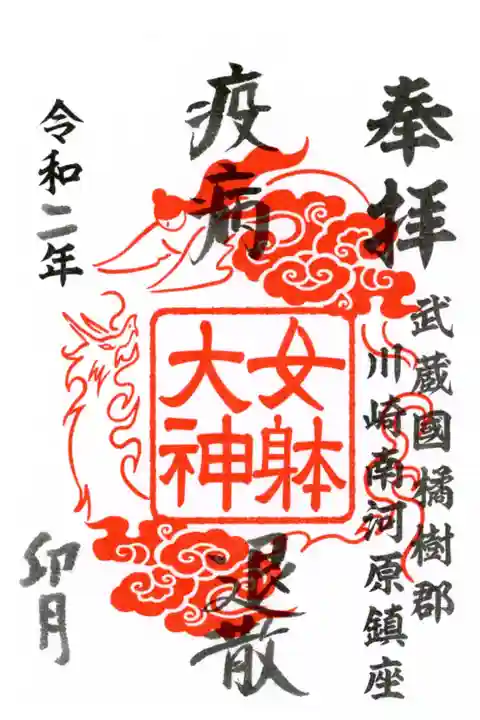 奉拝
武蔵國橘樹郡
川崎南河原鎮座
疫病
退散
女躰
大神
令和二年
卯月